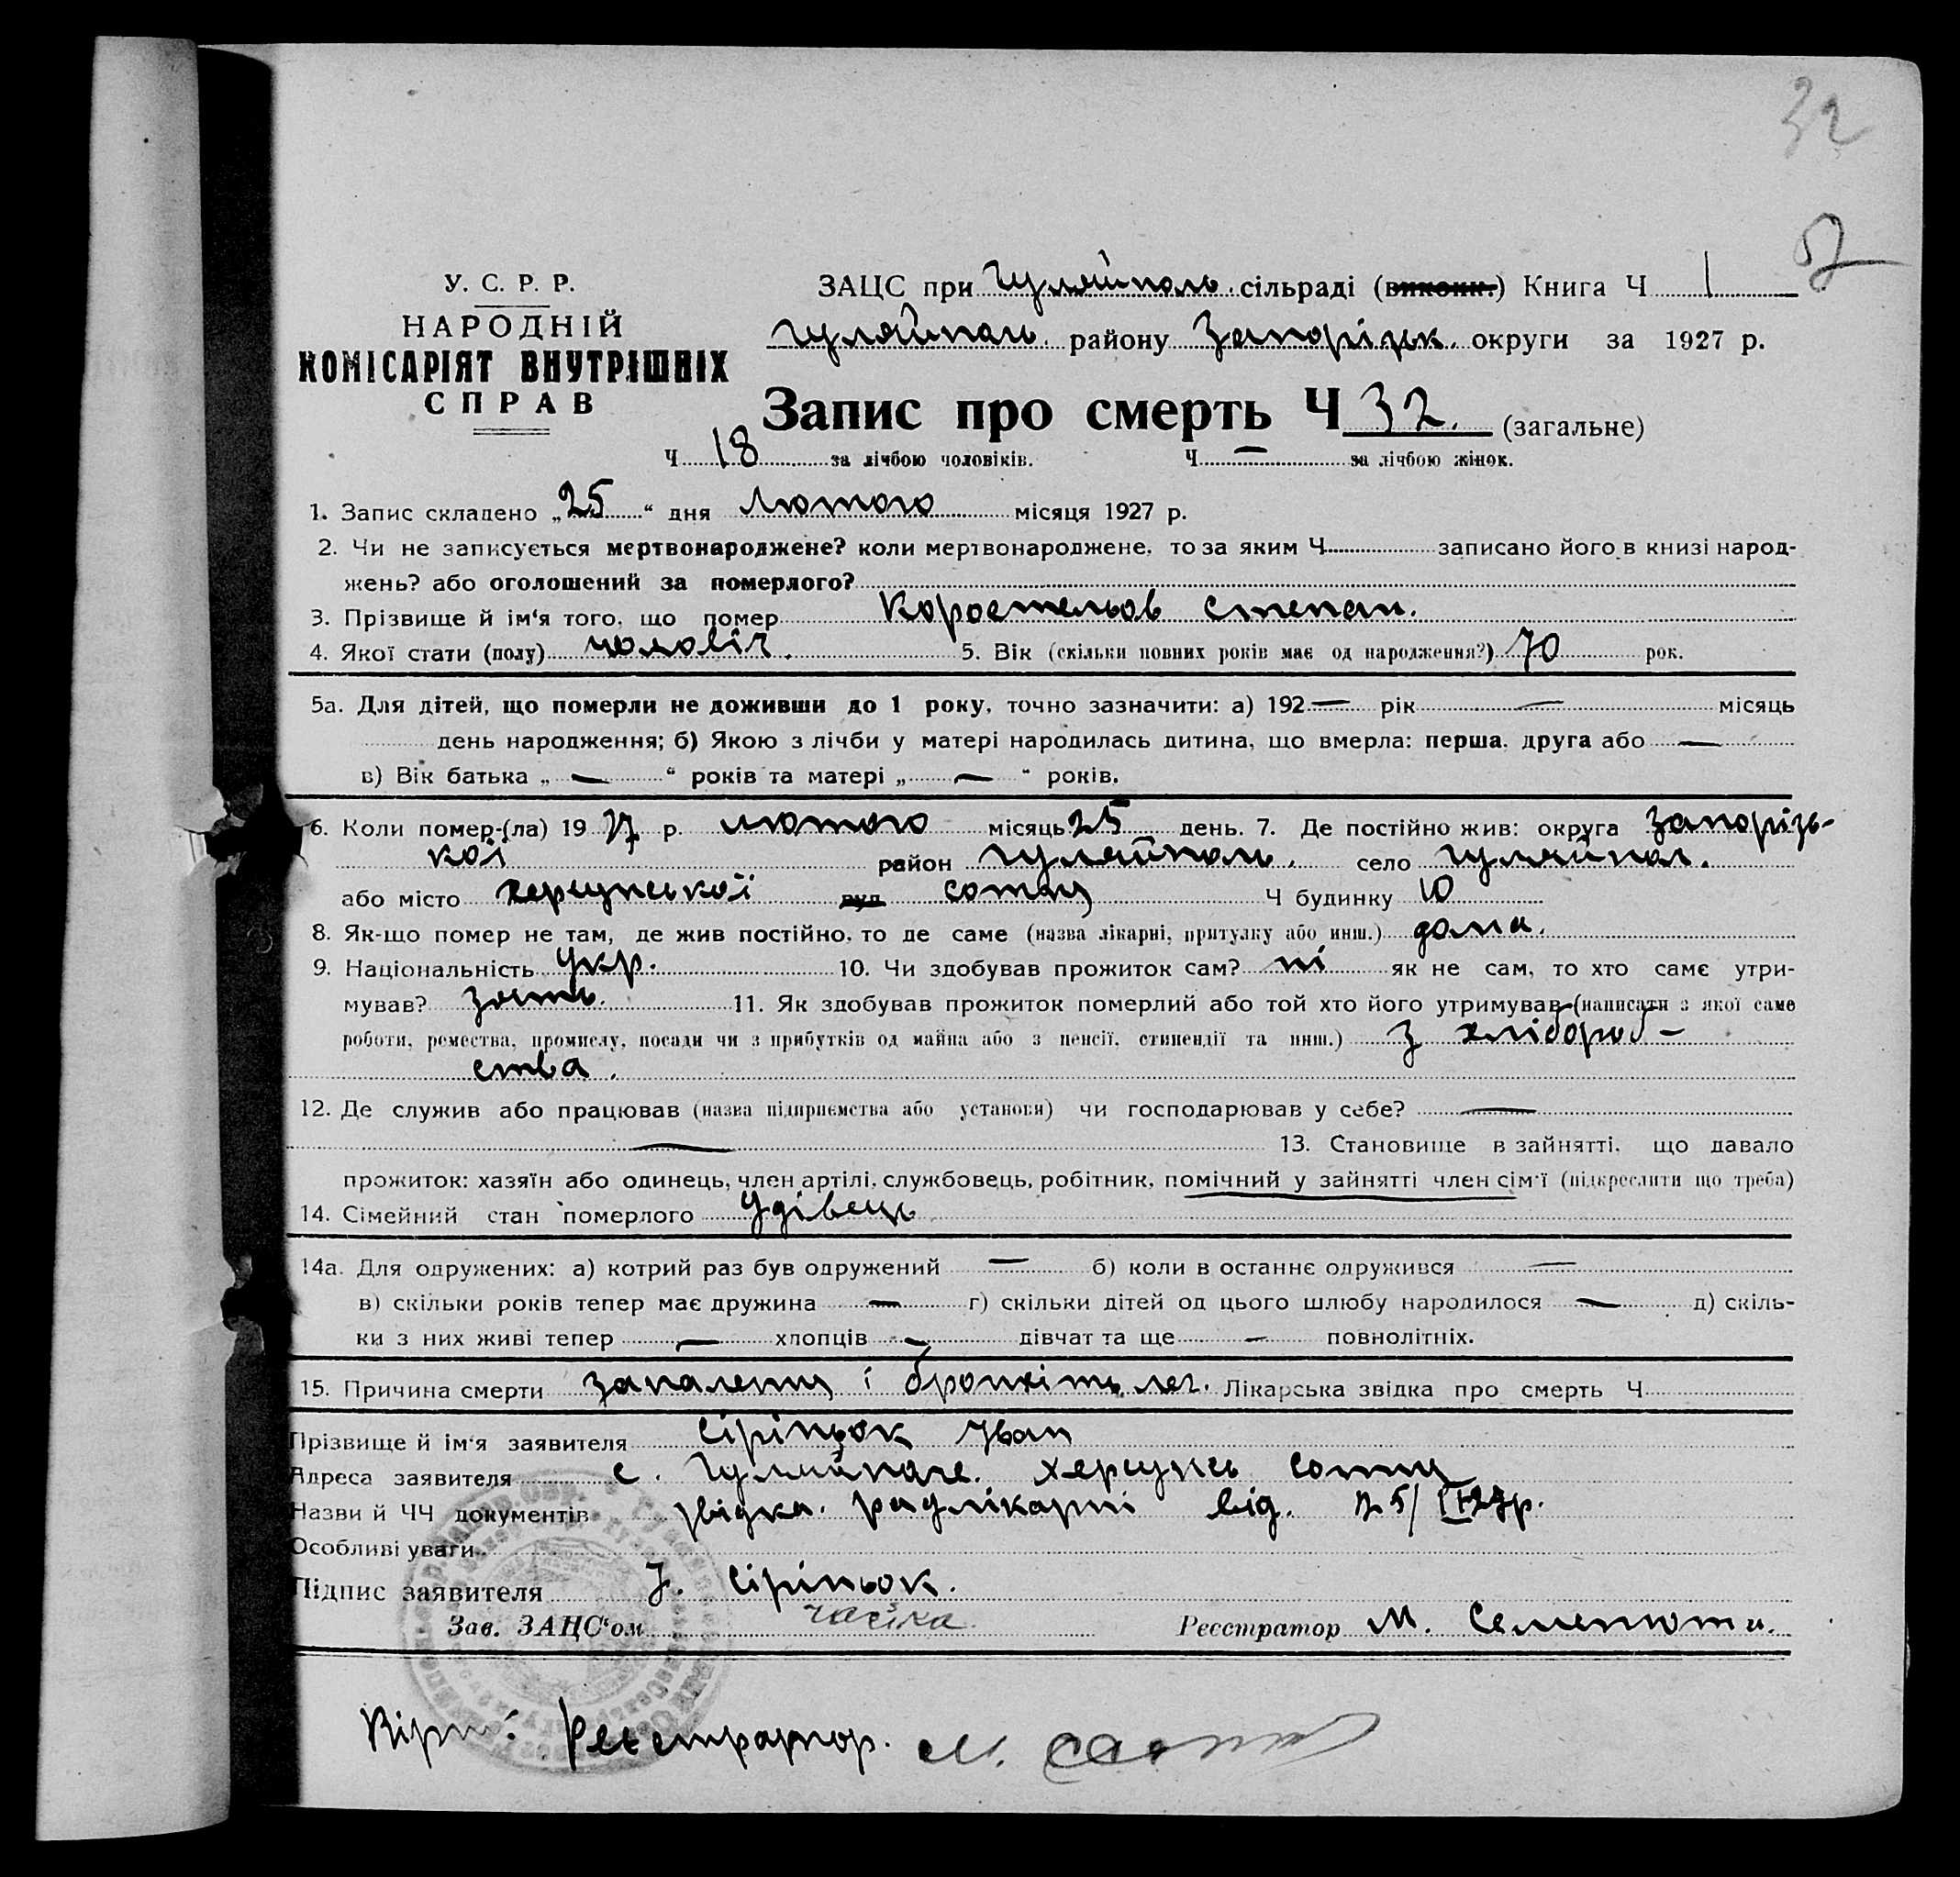 32
У. С. Р. Р.
НАРОДНІЙ
КОМІСАРІЯТ ВНУТРІШНІХ
СПРАВ
ЗАЦС при Гуляйполь. сільраді (виконк.) Книга Ч 1
Гуляйполь. району Запорізьк. округи за 1927 р.
Запис про смерть Ч 32. (загальне)
Ч 18 за лічбою чоловіків. Ч — за лічбою жінок.
1. Запис складено „25“ дня Лютого місяця 1927 р.
2. Чи не записується мертвонароджене? коли мертвонароджене, то за яким Ч записано його в книзі народ-
жень? або оголошений за померлого?
3. Прізвище й ім‘я того, що помер Коростельов Степан.
4. Якої стати (полу) чоловіч. 5. Вік (скільки повних років має од народження?) 70 рок.
5а. Для дітей, що померли не доживши до 1 року, точно зазначити: а) 192— рік — місяць
день народження; б) Якою з лічби у матері народилась дитина, що вмерла: перша, друга або —
в) Вік батька „—“ років та матері „—“ років.
6. Коли помер-(ла) 19 27 р. лютого місяць 25 день. 7. Де постійно жив: округа Запорізь-
кої район Гуляйполь. село Гуляйпол.
або місто херсунської вул сотня Ч будинку 10
8. Як-що помер не там, де жив постійно, то де саме (назва лікарні, притулку або инш.) дома.
9. Національність Укр. 10. Чи здобував прожиток сам? ні як не сам, то хто саме утри-
мував? зять. 11. Як здобував прожиток померлий або той хто його утримував (написати з якої саме
роботи, ремества, промислу, посади чи з прибутків од майна або з пенсії, стипендії та инш.) З хлібороб-
ства.
12. Де служив або працював (назва підприємства або установи) чи господарював у себе? —
— 13. Становище в зайнятті, що давало
прожиток: хазяїн або одинець, член артілі, службовець, робітник, помічний у зайнятті член сім‘ї (підкреслити що треба)
14. Сімейний стан померлого Удівець
14а. Для одружених: а) котрий раз був одружений — б) коли в останнє одружився —
в) скільки років тепер має дружина — г) скільки дітей од цього шлюбу народилося — д) скіль-
ки з них живі тепер — хлопців — дівчат та ще — повнолітніх.
15. Причина смерти запалення і бронхіть лег. Лікарська звідка про смерть Ч
Прізвище й ім‘я заявителя Сіріньок Іван
Адреса заявителя с. Гуляйполе. Херсунсь сотня
Назви й ЧЧ документів звідка. радлікарні від. 25/II-27р.
Особливі уваги
Підпис заявителя І. Сіріньок.
Зав. ЗАЦС‘ом Чайка Реєстратор М. Семенюта.
Вірно: Реєстратор. М.